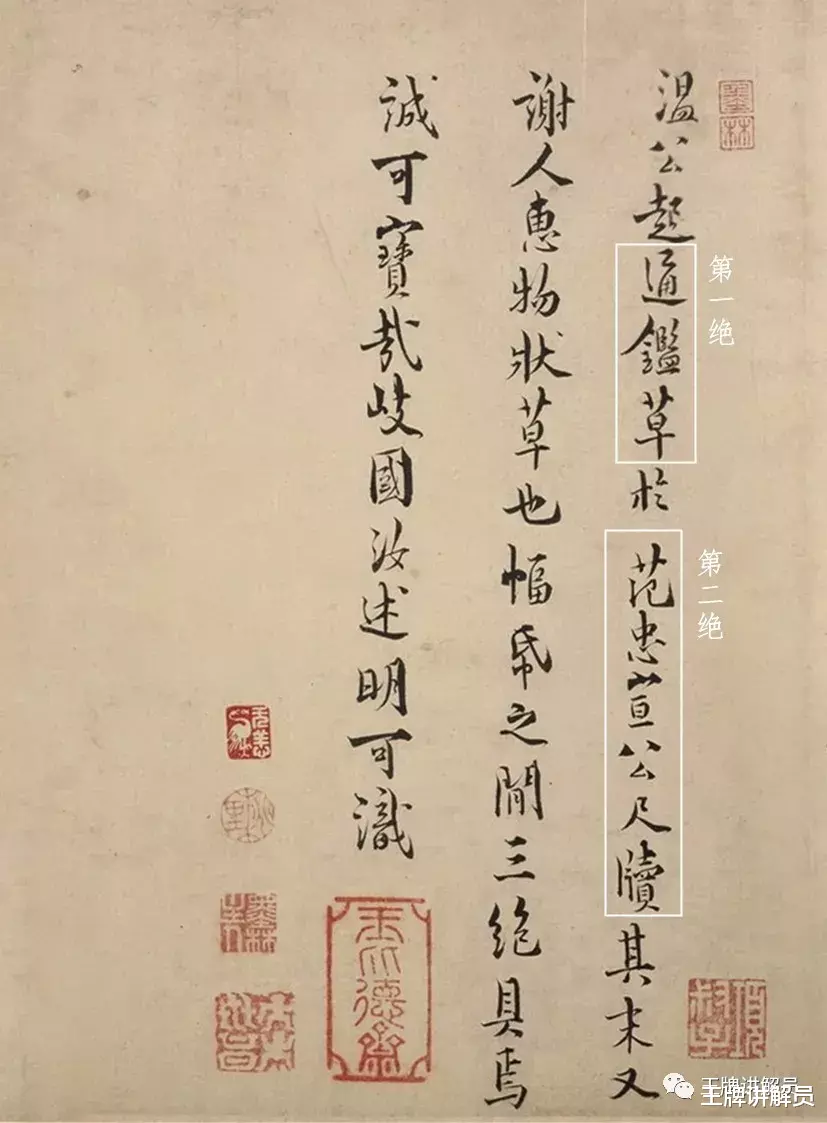 温公起通鑑草於范忠宣公尺牘其末又
謝人惠物狀草也幅帋之間三絶具焉
誠可寶哉岐國汝述明可識
第一绝
第二绝
墨林
王牌讲解员
王牌讲解员